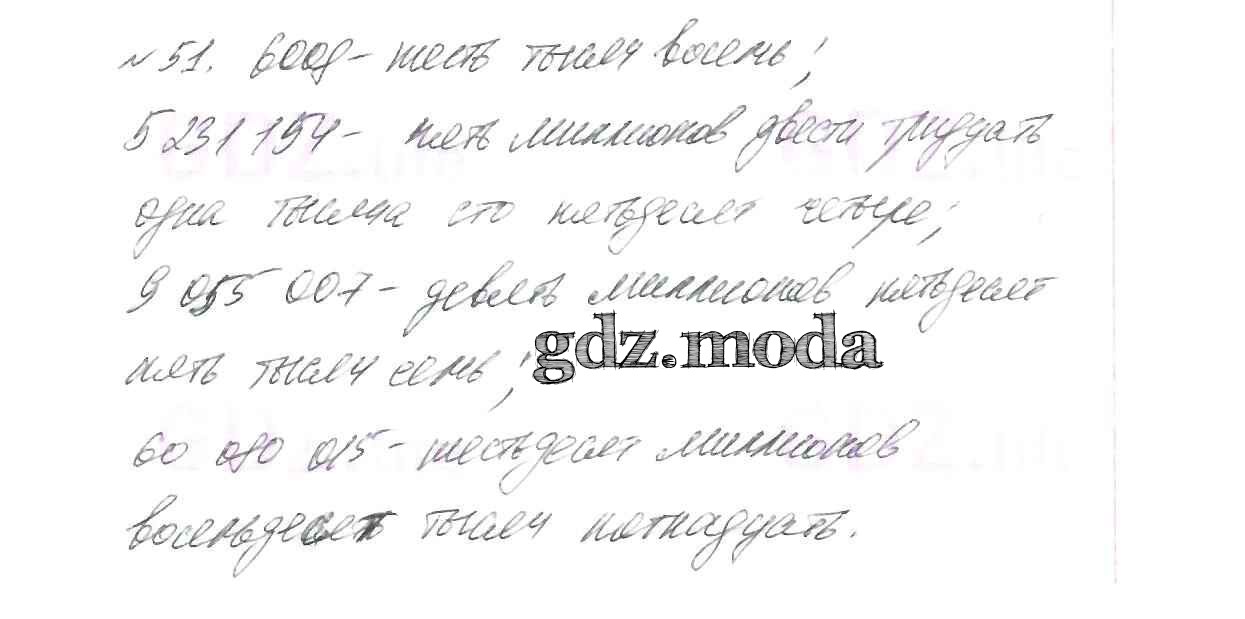 №51. 6008 - шесть тысяч восемь;
5 231 154 - пять миллионов двести тридцать
одна тысяча сто пятьдесят четыре;
9 055 007 - девять миллионов пятьдесят
gdz.moda
пять тысяч семь;
60 080 015 - шестьдесят миллионов
восемьдесят тысяч пятнадцать.